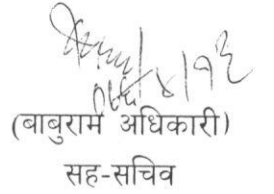 (बाबुराम अधिकारी)
सह-सचिव